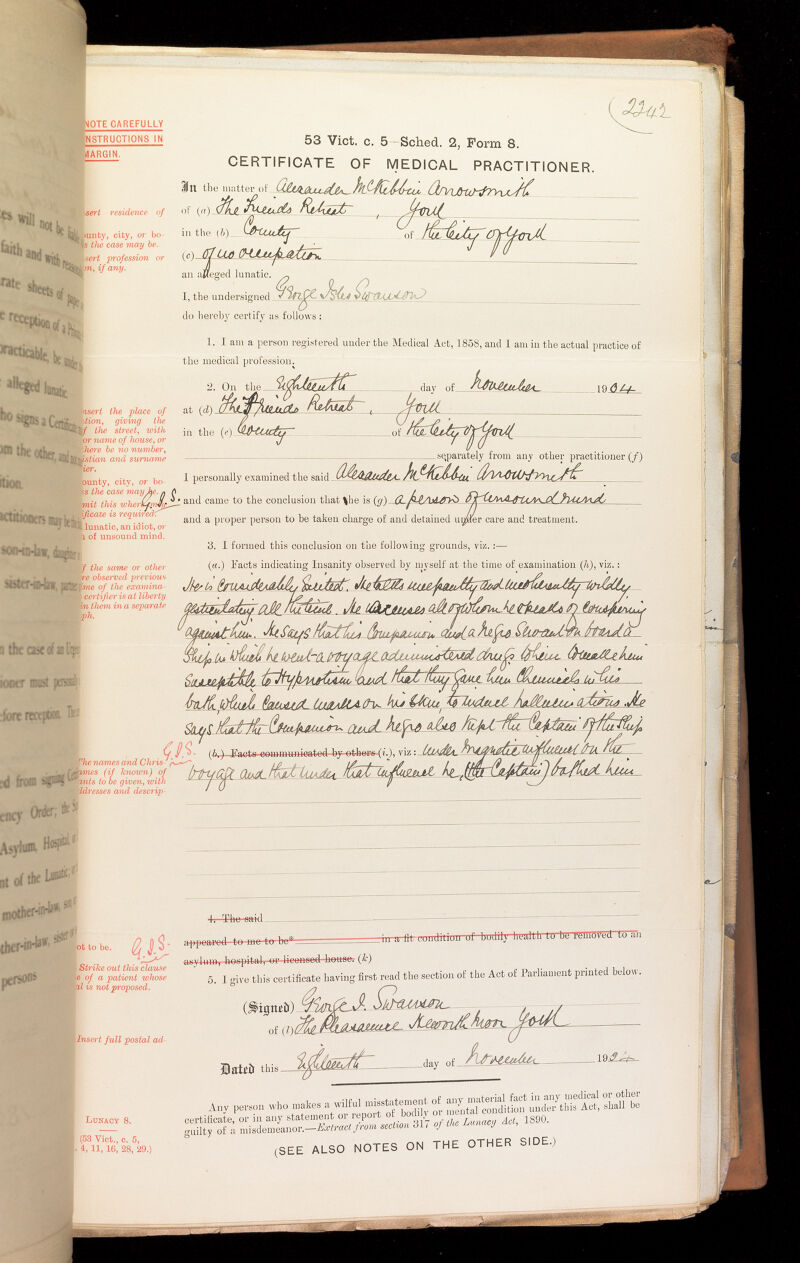 2242
NOTE CAREFULLY
INSTRUCTIONS IN
MARGIN.
53 Vict. c. 5—Sched. 2, Form 8.
CERTIFICATE OF MEDICAL PRACTITIONER.
In the matter of Alexander McKibbin Arrowsmith
sert residence of
of (a) The Friends Retreat, York
ounty, city, or bo-
s the case may be.
in the (b) County of the City of York
sert profession or
on, if any.
(c) of no occupation
an alleged lunatic.
I, the undersigned George Isles Swanson
do hereby certify as follows:
1. I am a person registered under the Medical Act, 1858, and I am in the actual practice of
the medical profession.
2. On the Eighteenth day of November 1904
nsert the place of
tion, giving the
f the street, with
or name of house, or
here be no number,
istian and surname
ier.
at (d) The Friends Retreat, York
in the (e) County of the City of York
separately from any other practitioner (f)
ounty, city, or bo-
s the case may be.
I personally examined the said Alexander McKibbin Arrowsmith
G.I.S.
and came to the conclusion that he is (g) a person of unsound mind
lunatic, an idiot, or
of unsound mind.
and a proper person to be taken charge of and detained under care and treatment.
3. I formed this conclusion on the following grounds, viz.:—
f the same or other
re observed previous
me of the examina-
certifier is at liberty
in them in a separate
ph.
(a.) Facts indicating Insanity observed by myself at the time of examination (h), viz.:
He is considerably excited. He talks incessantly and incoherently wildly
gesticulating all the time. He accuses all of whom he speaks of conspiring
against him. He says that his Companion and a negro Servant on board a
Ship in which he went a voyage administered drugs to him to make him
susceptible to Hypnotism and that they gave him Chemicals in his
bath, which caused marks on his skin, to induce hallucinations. He
says that the Companion and negro also kept the Captain of the Ship
G.I.S.
(b.) Facts communicated by others (i.), viz: under magnetic influence on the
voyage and that under that influence he, (the Captain) bathed him
The names and Chris-
ames (if known) of
ants to be given, with
ddresses and descrip-
4. The said
ot to be.
G.I.S.
appeared to me to be* in a fit condition of bodily health to be removed to an
asylum, hospital, or licensed house. (k)
Strike out this clause
e of a patient whose
al is not proposed.
5. I give this certificate having first read the section of the Act of Parliament printed below.
(Signed) George I. Swanson
Insert full postal ad-
of (l) The Pleasaunce Heworth Moor York
Dated this Eighteenth day of November 1904
Any person who makes a wilful misstatement of any material fact in any medical or other
certificate, or in any statement or report of bodily or mental condition under this Act, shall be
guilty of a misdemeanor.—Extract from section 317 of the Lunacy Act, 1890.
LUNACY 8.
(53 Vict., c. 5,
4, 11, 16, 28, 29.)
(SEE ALSO NOTES ON THE OTHER SIDE.)